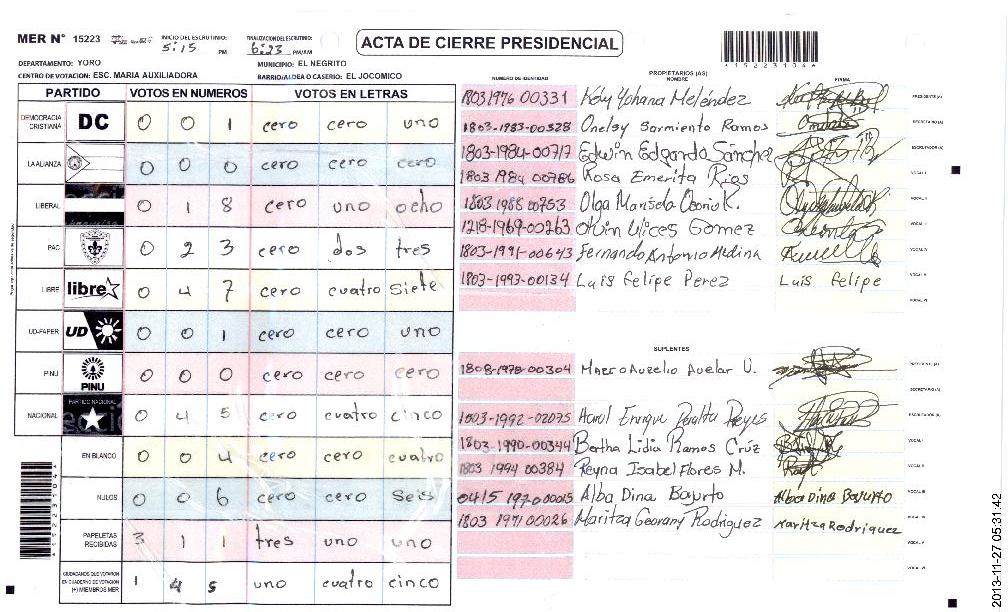 MER N° 15223 INICIO DEL ESCRUTINIO: 5:15 PM FINALIZACION DEL ESCRUTINIO: 6:23 PM/AM
ACTA DE CIERRE PRESIDENCIAL
DEPARTAMENTO: YORO MUNICIPIO: EL NEGRITO
CENTRO DE VOTACION: ESC. MARIA AUXILIADORA BARRIO/ALDEA O CASERIO: EL JOCOMICO
*15223104*
PARTIDO VOTOS EN NUMEROS VOTOS EN LETRAS
DEMOCRACIA CRISTIANA DC 0 0 1 cero cero uno
LA ALIANZA 0 0 0 cero cero cero
LIBERAL 0 1 8 cero uno ocho
PAC 0 2 3 cero dos tres
LIBRE libre 0 4 7 cero cuatro siete
UD-FAPER UD 0 0 1 cero cero uno
PINU PINU 0 0 0 cero cero cero
NACIONAL PARTIDO NACIONAL 0 4 5 cero cuatro cinco
EN BLANCO 0 0 4 cero cero cuatro
NULOS 0 0 6 cero cero Seis
PAPELETAS RECIBIDAS 3 1 1 tres uno uno
CIUDADANOS QUE VOTARON EN CUADERNO DE VOTACION (+) MIEMBROS MER 1 4 5 uno cuatro cinco
NUMERO DE IDENTIDAD PROPIETARIOS (AS) NOMBRE FIRMA
1803 1976 00331 Kely Yohana Meléndez PRESIDENTE (A)
1803-1983-00328 Onelsy Sarmiento Ramos SECRETARIO (A)
1803-1984-00717 Edwin Edgardo Sánchez ESCRUTADOR (A)
1803 1984 00786 Rosa Emerita Rios VOCAL I
1803 1988 00753 Olga Marisela Osorio K. VOCAL II
1218-1969-00263 Ulices Gomez
1803-1991-00643 Fernando Antonio Medina VOCAL IV
1803-1993-00134 Luis Felipe Perez Luis Felipe
VOCAL VI
SUPLENTES
1808-1978-00304 Marco Aurelio Avelar U. PRESIDENTE (A)
SECRETARIO (A)
1803-1992-02075 Enrique Peralta Reyes ESCRUTADOR (A)
1803-1990-00344 Bertha Lidia Ramos Crúz VOCAL I
1803 1994 00384 Reyna Isabel Flores M. VOCAL II
0415 1970 00015 Alba Dina Bajurto Alba Dina Bajurto VOCAL III
1803 1971 00026 Maritza Georany Rodriguez Maritza Rodriguez
VOCAL V
VOCAL VI
2013-11-27 05:31:42